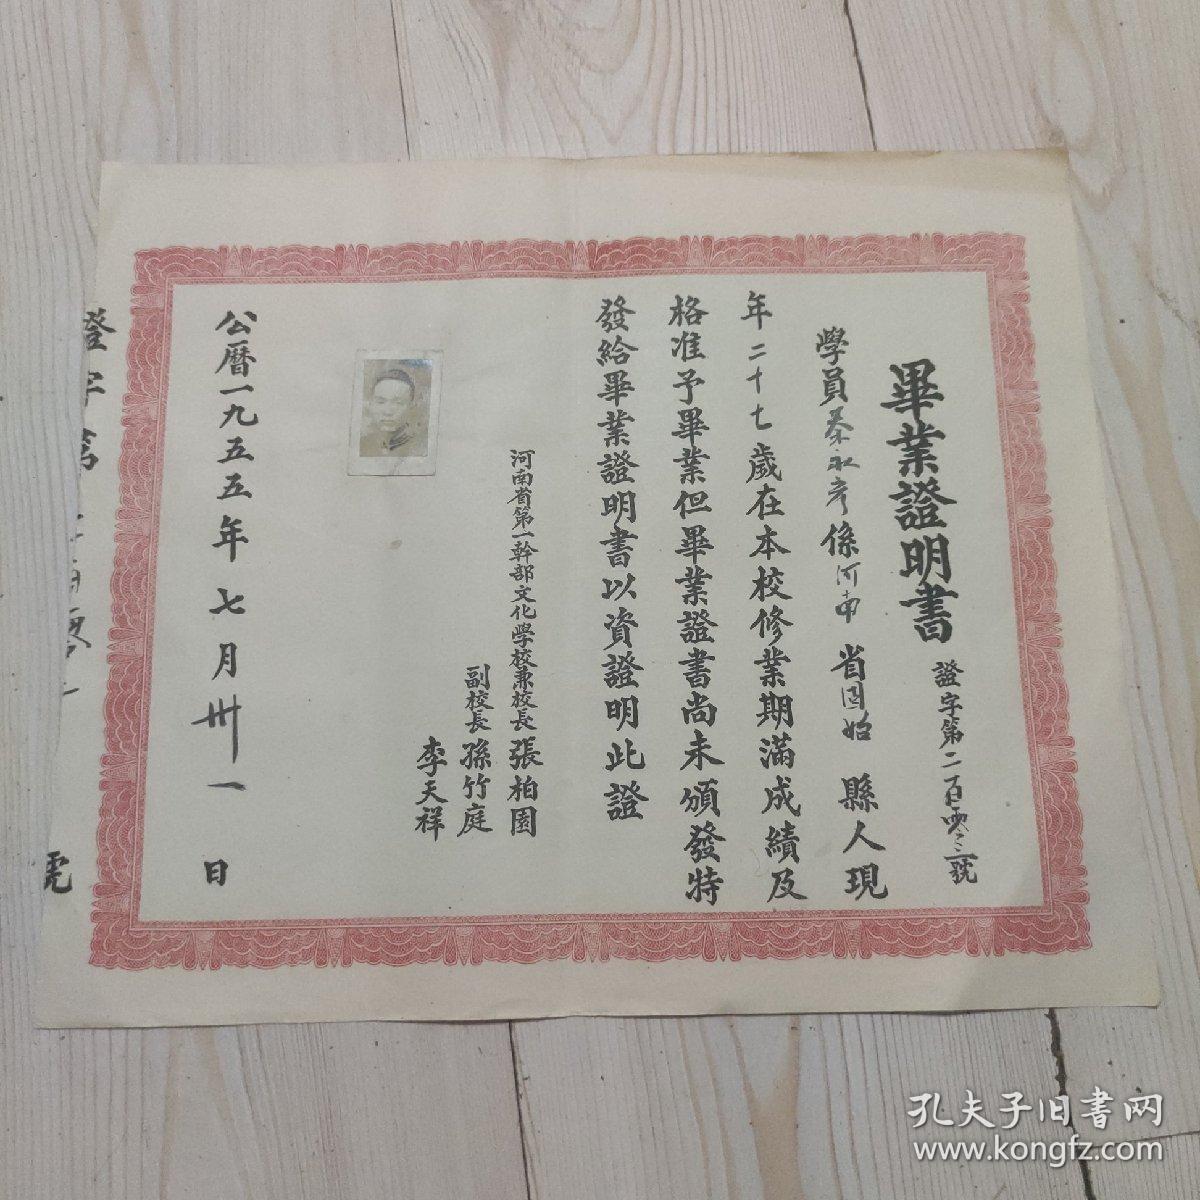 畢業證明書
證字第二百零三號
學員蔡永彥係河南省固始縣人現
年二十七歲在本校修業期滿成績及
格准予畢業但畢業證書尚未頒發特
發給畢業證明書以資證明此證
河南省第一幹部文化學校兼校長張柏園
副校長孫竹庭
李天祥
公曆一九五五年七月卅一日
證字第
號
孔夫子旧书网
www.kongfz.com